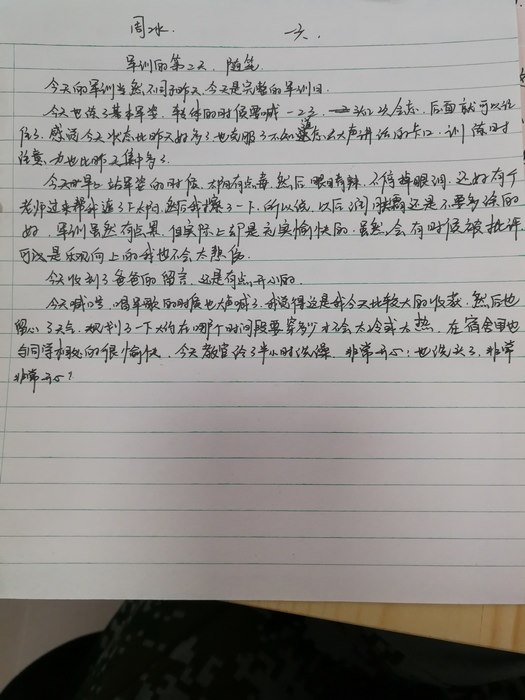 周冰 六.
军训的第二天 随笔
今天的军训当然不同于昨天,今天是完整的军训日.
今天也练了基本军姿. 转体的时候要喊一二三, 头2次会忘. 后面就可以记
住了. 感觉今天状态比昨天好多了也克服了不知道怎么大声讲话的卡口. 训练时
注意力也比昨天集中多了.
今天早上站军姿的时候. 太阳有点毒 然后眼睛有点辣. 不停掉眼泪. 还好有个
老师过来帮我遮了下太阳, 然后我擦了一下. 所以说. 以后润肤霜还是不要多涂的
好. 军训虽然有点累 但实际上却是充实愉快的. 虽然会有时候被批评
可以是乐观向上的我也不会太悲伤.
今天收到了爸爸的留言. 还是有点开心的.
今天喊口号, 唱军歌的时候也大声喊了. 我觉得这是我今天比较大的收获. 然后也
留心了天气. 规划了一下大约在哪个时间段要穿多少才不会太冷或太热. 在宿舍里也
与同学相处的很愉快. 今天教官给了半小时洗澡. 非常开心! 也洗头了. 非常
非常开心!